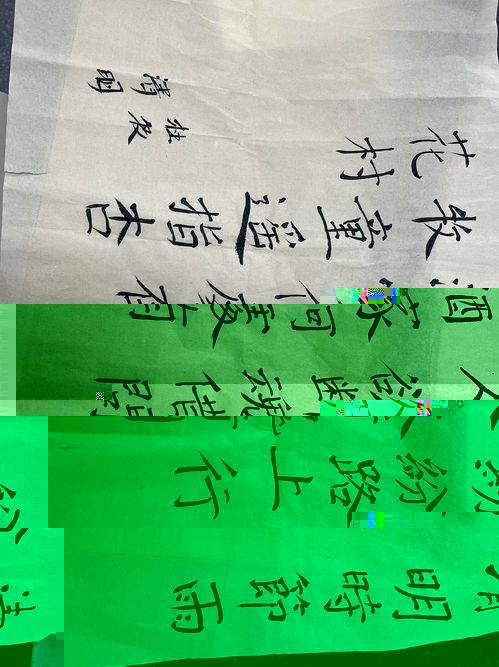 清明時節雨
紛紛路上行
人欲斷魂借問
酒家何處有
牧童遙指杏
花村
杜牧
清明